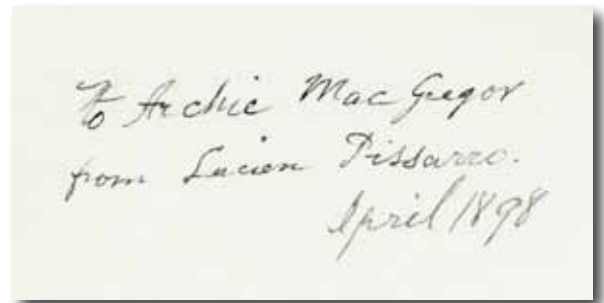 To Archie MacGregor
from Lucien Pissarro.
April 1898